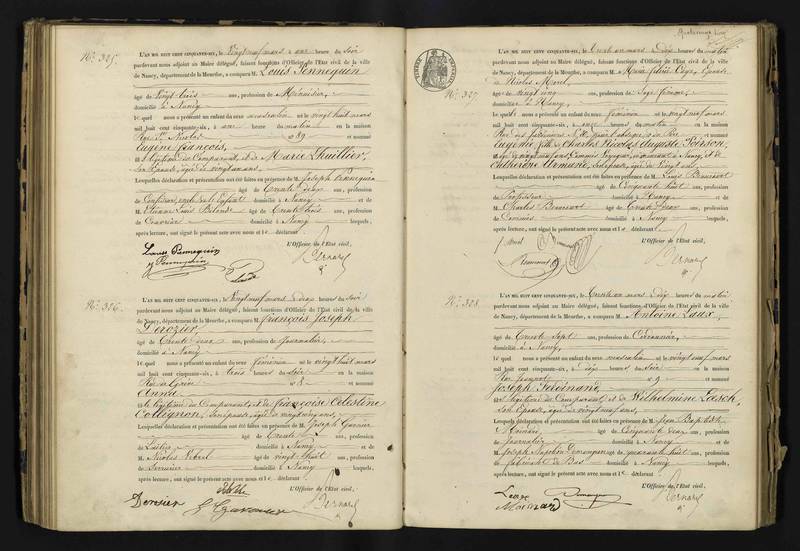 No. 325.
L'AN MIL HUIT CENT CINQUANTE-SIX, le vingt neuf mars à une heure du soir
pardevant nous adjoint au Maire délégué, faisant fonctions d'Officier de l'Etat civil de la ville
de Nancy, département de la Meurthe, a comparu M. Louis Pennequin
âgé de vingt trois ans, profession de Menuisier,
domicilié à Nancy
lequel nous a présenté un enfant du sexe masculin né le vingt huit mars
mil huit cent cinquante-six, à une heure du matin en la maison
Rue St. Nicolas No 89 et nommé
Eugène François,
fils légitime du Comparant, et de Marie Lhuillier,
son Epouse, âgée de vingt un ans,
Lesquelles déclaration et présentation ont été faites en présence de M. Joseph Pennequin
âgé de trente deux ans, profession
de Confiseur, oncle de l'enfant domicilié à Nancy et de
M. Etienne Louis Blond âgé de trente trois ans, profession
de domicilié à Nancy lesquels,
après lecture, ont signé le présent acte avec nous et le déclarant
L'Officier de l'Etat civil,
Louis Pennequin
J Pennequin
Bernard
No. 326
L'AN MIL HUIT CENT CINQUANTE-SIX, le vingt neuf mars à deux heures du soir
pardevant nous adjoint au Maire délégué, faisant fonctions d'Officier de l'Etat civil de la ville
de Nancy, département de la Meurthe, a comparu M. François Joseph
Derozier
âgé de trente deux ans, profession de Journalier,
domicilié à Nancy
lequel nous a présenté un enfant du sexe féminin né le vingt huit mars
mil huit cent cinquante-six, à trois heures du soir en la maison
No 8 et nommé
Anna
fille légitime du Comparant, et de Françoise Célestine
Collignon, son épouse, âgée de vingt cinq ans,
Lesquelles déclaration et présentation ont été faites en présence de M. Joseph Garnier
âgé de trente ans, profession
de domicilié à Nancy et de
M. Nicolas âgé de vingt huit ans, profession
de Serrurier domicilié à Nancy lesquels,
après lecture, ont signé le présent acte avec nous et le déclarant
L'Officier de l'Etat civil,
Derosier
Bernard
No. 327
L'AN MIL HUIT CENT CINQUANTE-SIX, le trente un mars à dix heures du matin
pardevant nous adjoint au Maire délégué, faisant fonctions d'Officier de l'Etat civil de la ville
de Nancy, département de la Meurthe, a comparu M. Marie Epouse
de Nicolas Morel,
âgée de vingt cinq ans, profession de Sage femme,
domiciliée à Nancy,
laquelle nous a présenté un enfant du sexe féminin né le vingt neuf mars
mil huit cent cinquante-six, à onze heures du matin en la maison
Rue du père et nommé
Eugénie, fille de Charles Nicolas Auguste Poirson,
âgé de vingt ans, Commis Voyageur, demeurant à Nancy et de
Catherine son épouse, âgée de vingt ans,
Lesquelles déclaration et présentation ont été faites en présence de M. Louis
âgé de cinquante huit ans, profession
de Professeur domicilié à Nancy et de
M. Charles âgé de trente deux ans, profession
de Commis domicilié à Nancy lesquels,
après lecture, ont signé le présent acte avec nous et le déclarant
L'Officier de l'Etat civil,
Bernard
No. 328
L'AN MIL HUIT CENT CINQUANTE-SIX, le trente un mars à dix heures du matin
pardevant nous adjoint au Maire délégué, faisant fonctions d'Officier de l'Etat civil de la ville
de Nancy, département de la Meurthe, a comparu M. Antoine Laux,
âgé de trente sept ans, profession de Cordonnier,
domicilié à Nancy
lequel nous a présenté un enfant du sexe masculin né le vingt neuf mars
mil huit cent cinquante-six, à dix heures du soir en la maison
No 9 et nommé
Joseph Ferdinand,
fils légitime du Comparant et de Wilhelmine Lasch,
son Epouse, âgée de vingt neuf ans,
Lesquelles déclaration et présentation ont été faites en présence de M. Jean Baptiste
âgé de cinquante deux ans, profession
de Journalier domicilié à Nancy et de
M. Joseph Napoléon âgé de quarante huit ans, profession
de fabricant de Bas domicilié à Nancy lesquels,
après lecture, ont signé le présent acte avec nous et le déclarant
L'Officier de l'Etat civil,
Bernard